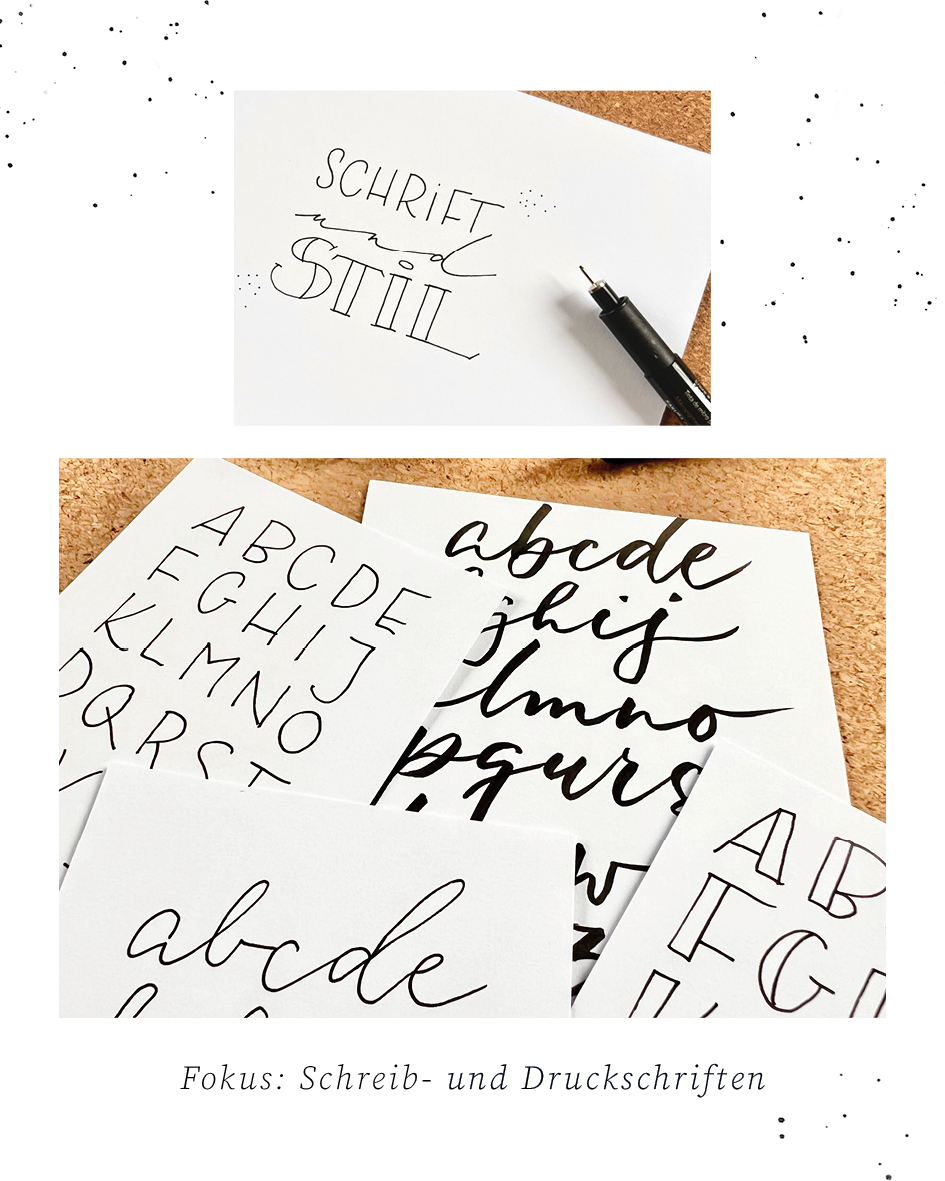 SCHRiFT
und
STiL
Tinta de
ABCDE
FGHIJ
KLMNO
QRST
abcde
ghij
lmno
pqrs
w
z
abcde
AB
FG
Fokus: Schreib- und Druckschriften